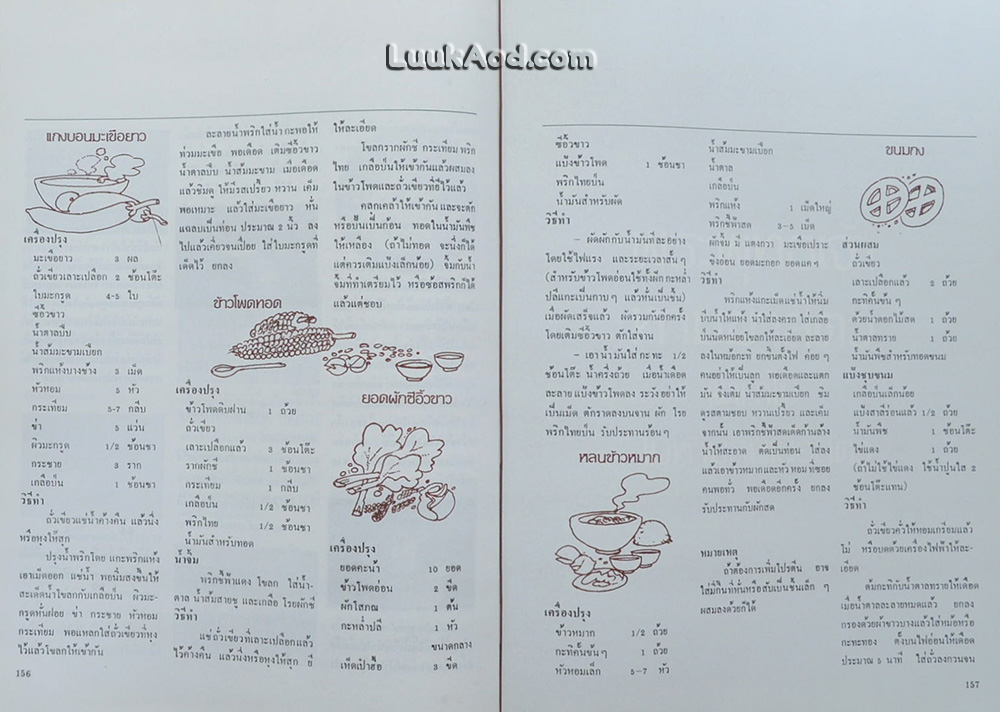 LuukAod.com
แกงบอนมะเขือยาว
เครื่องปรุง
มะเขือยาว 3 ผล
ถั่วเขียวเลาะเปลือก 2 ช้อนโต๊ะ
ใบมะกรูด 4-5 ใบ
ซีอิ้วขาว
น้ำตาลปีบ
น้ำส้มมะขามเปียก
พริกแห้งบางช้าง 3 เม็ด
หัวหอม 5 หัว
กระเทียม 5-7 กลีบ
ข่า 5 แว่น
ผิวมะกรูด 1/2 ช้อนชา
กระชาย 3 ราก
เกลือป่น 1 ช้อนชา
วิธีทำ
ถั่วเขียวแช่น้ำค้างคืน แล้วนึ่ง
หรือหุงให้สุก
ปรุงน้ำพริกโดย แกะพริกแห้ง
เอาเม็ดออก แช่น้ำ พอนิ่มสงขึ้นให้
สะเด็ดน้ำโขลกกับเกลือป่น ผิวมะ-
กรูดหั่นฝอย ข่า กระชาย หัวหอม
กระเทียม พอแหลกใส่ถั่วเขียวที่หุง
ไว้แล้วโขลกให้เข้ากัน
156
ละลายน้ำพริกใส่น้ำ กะพอให้
ท่วมมะเขือ พอเดือด เติมซีอิ้วขาว
น้ำตาลปีบ น้ำส้มมะขาม เมื่อเดือด
แล้วชิมดู ให้มีรสเปรี้ยว หวาน เค็ม
พอเหมาะ แล้วใส่มะเขือยาว หั่น
แฉลบเป็นท่อน ประมาณ 2 นิ้ว ลง
ไปแล้วเคี่ยวจนเปื่อย ใส่ใบมะกรูดที่
เด็ดไว้ ยกลง
ข้าวโพดทอด
เครื่องปรุง
ข้าวโพดดิบฝาน 1 ถ้วย
ถั่วเขียว
เลาะเปลือกแล้ว 3 ช้อนโต๊ะ
รากผักชี 1 ช้อนชา
กระเทียม 1 กลีบ
เกลือป่น 1/2 ช้อนชา
พริกไทย 1/2 ช้อนชา
น้ำมันสำหรับทอด
น้ำจิ้ม
พริกชี้ฟ้าแดง โขลก ใส่น้ำ-
ตาล น้ำส้มสายชู และเกลือ โรยผักชี
วิธีทำ
แช่ถั่วเขียวที่เลาะเปลือกแล้ว
ไว้ค้างคืน แล้วนึ่งหรือหุงให้สุก ยี
ให้ละเอียด
โขลกรากผักชี กระเทียม พริก
ไทย เกลือป่นให้เข้ากันแล้วผสมลง
ในข้าวโพดและถั่วเขียวที่ยีไว้แล้ว
คลุกเคล้าให้เข้ากัน และจะตัก
หรือปั้นเป็นก้อน ทอดในน้ำมันพืช
ให้เหลือง (ถ้าไม่ทอด จะนึ่งก็ได้
แต่ควรเติมแป้งเล็กน้อย) จิ้มกับน้ำ
จิ้มที่ทำเตรียมไว้ หรือซ๊อสพริกก็ได้
แล้วแต่ชอบ
ยอดผักซีอิ้วขาว
เครื่องปรุง
ยอดคะน้า 10 ยอด
ข้าวโพดอ่อน 2 ขีด
ผักโสภณ 1 ต้น
กะหล่ำปลี 1 หัว
ขนาดกลาง
เห็ดเป๋าฮื้อ 3 ขีด
ซีอิ้วขาว
แป้งข้าวโพด 1 ช้อนชา
พริกไทยป่น
น้ำมันสำหรับผัด
วิธีทำ
– ผัดผักกับน้ำมันทีละอย่าง
โดยใช้ไฟแรง และระยะเวลาสั้นๆ
(สำหรับข้าวโพดอ่อนใช้ทั้งฝัก กะหล่ำ
ปลีแกะเป็นกาบๆ แล้วหั่นเป็นชิ้น)
เมื่อผัดเสร็จแล้ว ผัดรวมกันอีกครั้ง
โดยเติมซีอิ้วขาว ตักใส่จาน
– เอาน้ำมันใส่กะทะ 1/2
ช้อนโต๊ะ น้ำครึ่งถ้วย เมื่อน้ำเดือด
ละลายแป้งข้าวโพดลง ระวังอย่าให้
เป็นเม็ด ตักราดลงบนจาน ผัก โรย
พริกไทยป่น รับประทานร้อนๆ
หลนข้าวหมาก
เครื่องปรุง
ข้าวหมาก 1/2 ถ้วย
กะทิคั้นข้นๆ 1 ถ้วย
หัวหอมเล็ก 5-7 หัว
น้ำส้มมะขามเปียก
น้ำตาล
เกลือป่น
พริกแห้ง 1 เม็ดใหญ่
พริกชี้ฟ้าสด 3-5 เม็ด
ผักจิ้ม มี แตงกวา มะเขือเปราะ
ขิงอ่อน ยอดมะกอก
วิธีทำ
พริกแห้งแกะเม็ดแช่น้ำให้นิ่ม
บีบน้ำให้แห้ง นำใส่ลงครก ใส่เกลือ
ป่นนิดหน่อยโขลกให้ละเอียด ละลาย
ลงในหม้อกะทิ ยกขึ้นตั้งไฟ ค่อยๆ
คนอย่าให้เป็นลูก พอเดือดและแตก
มัน จึงเติม น้ำส้มมะขามเปียก ชิม
ดูรสตามชอบ หวานเปรี้ยว และเค็ม
จากนั้น เอาพริกชี้ฟ้าสดเด็ดก้านล้าง
น้ำให้สะอาด ตัดเป็นท่อน ใส่ลง
แล้วเอาข้าวหมากและหัวหอม ที่ซอย
คนพอทั่ว พอเดือดอีกครั้ง ยกลง
รับประทานกับผักสด
หมายเหตุ
ถ้าต้องการเพิ่มโปรตีน อาจ
ผสมลงด้วยก็ได้
ขนมกง
ส่วนผสม
ถั่วเขียว
เลาะเปลือกแล้ว 2 ถ้วย
กะทิคั้นข้นๆ
ด้วยน้ำดอกไม้สด 1 ถ้วย
น้ำตาลทราย 1 ถ้วย
น้ำมันพืชสำหรับทอดขนม
แป้งชุบขนม
เกลือป่นเล็กน้อย
แป้งสาลีร่อนแล้ว 1/2 ถ้วย
น้ำมันพืช 1 ช้อนโต๊ะ
ไข่แดง 1 ถ้วย
(ถ้าไม่ใช้ไข่แดง ใช้น้ำปูนใส 2
ช้อนโต๊ะแทน)
วิธีทำ
ถั่วเขียวคั่วให้หอมเกรียมแล้ว
โม่ หรือบดด้วยเครื่องไฟฟ้าให้ละ-
เอียด
ต้มกะทิกับน้ำตาลทรายให้เดือด
เมื่อน้ำตาลละลายหมดแล้ว ยกลง
กรองด้วยผ้าขาวบางแล้วใส่หม้อหรือ
กะทะทอง ตั้งบนไฟอ่อนให้เดือด
ประมาณ 5 นาที ใส่ถั่วลงกวนจน
157